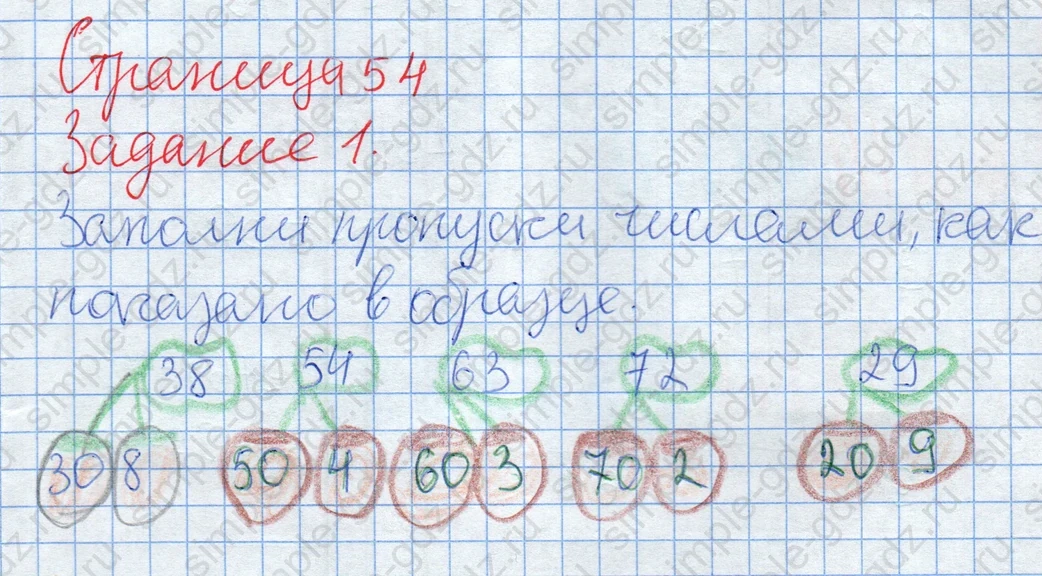 Страница 54
Задание 1.
Заполни пропуски числами, как
показано в образце.
38 54 63 72 29
30 8 50 4 60 3 70 2 20 9
simple-gdz.ru